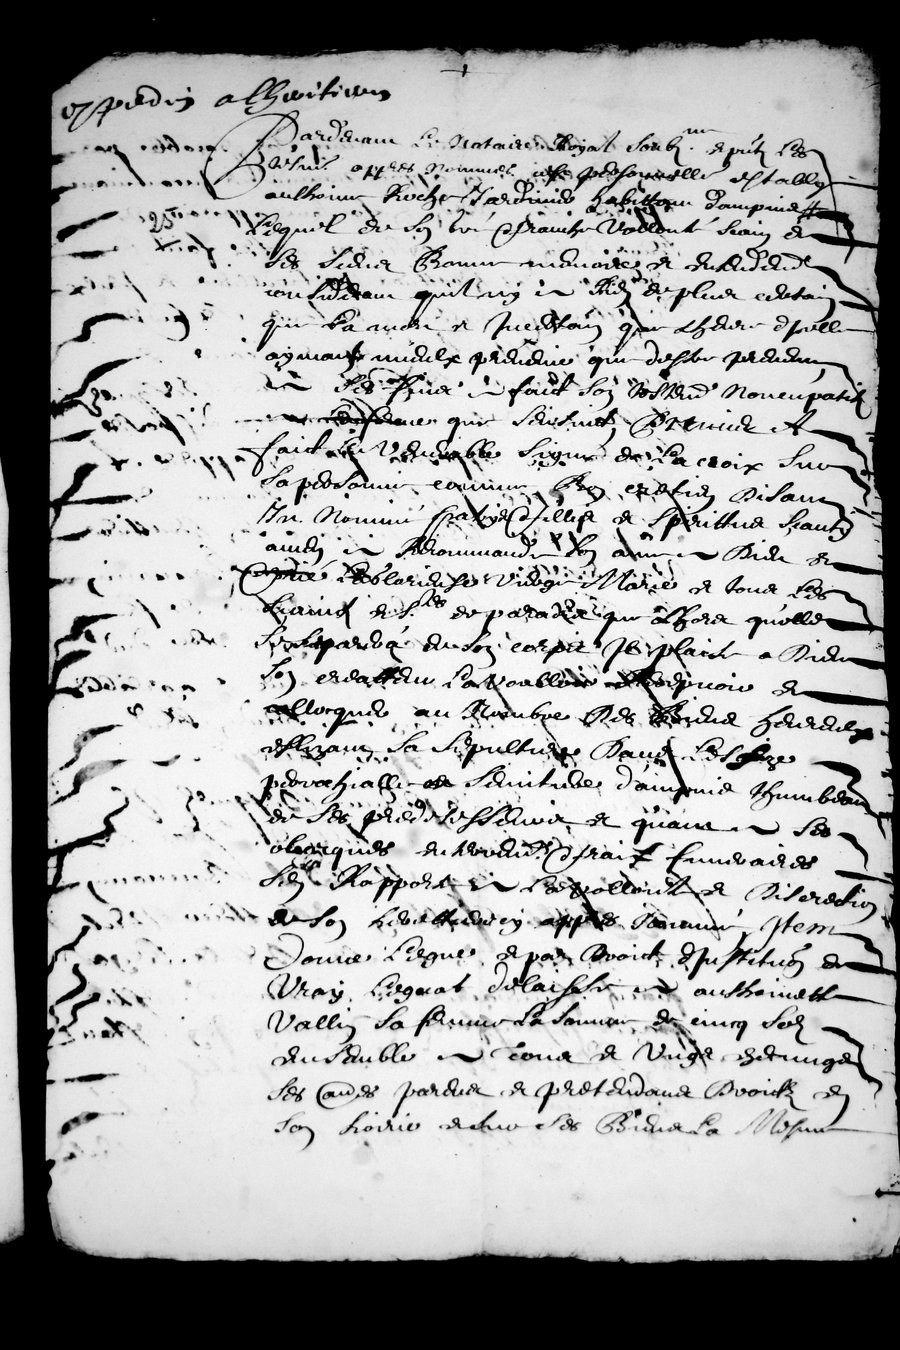 expedié a lheritiere
Pardevant Le Notaire Royal soubz.ne et pnts Les
tesm. appres nommés personnelle estably
anthoine Roche Jardinier habittant dampuis
Lequel de son bon gré franche Vollonté sain de
ses sens Bonne memoire et entendemt
considerant quil ny a Rien de plus certain
que La mort et Incertain que Lheure dicelle
aymant mieulx prevenir que destre prevenu
a ses fins a faict son testemt Noncupatif
que sensuict Premier A
faict Le Venerable Signe de La croix sur
sa personne comme Bon crestien Disant
In Nomine patris & fillii et Spirittus Sancti
amen a Recommandé son ame a Dieu
Glorieuse Vierge Marie et tous Les
Saincts et Stes de paradis que a Lhore quelle
se separera de son corps Il plaise a Dieu
son creatteur La voulloir Recepvoir et
collocquer au Nombre Des Biens heureux
eslizant sa Sepulture Dans Lesglize
parrochialle et Simitiere dampuis thumbeau
de ses predecesseurs et quant a ses
obsecques enterremt & fraix funeraires
sen Rapporte a La vollonté et Discretion
de son herittiere appres Nommée, Item
Donne Legue et par Droict dInstitution et
Vray Legat delaisse a anthoinette
Vallin sa femme La somme de cinq solz
ensemble a tous et Ungs chescungs
ses aues parens et pretendant Droictz en
son hoirie et sur ses Biens La Mesme